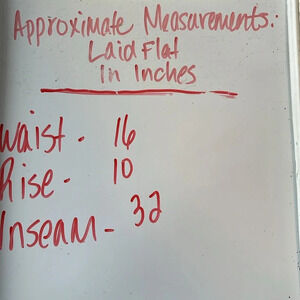 Approximate Measurements:
Laid Flat
In Inches
Waist - 16
Rise - 10
Inseam - 32